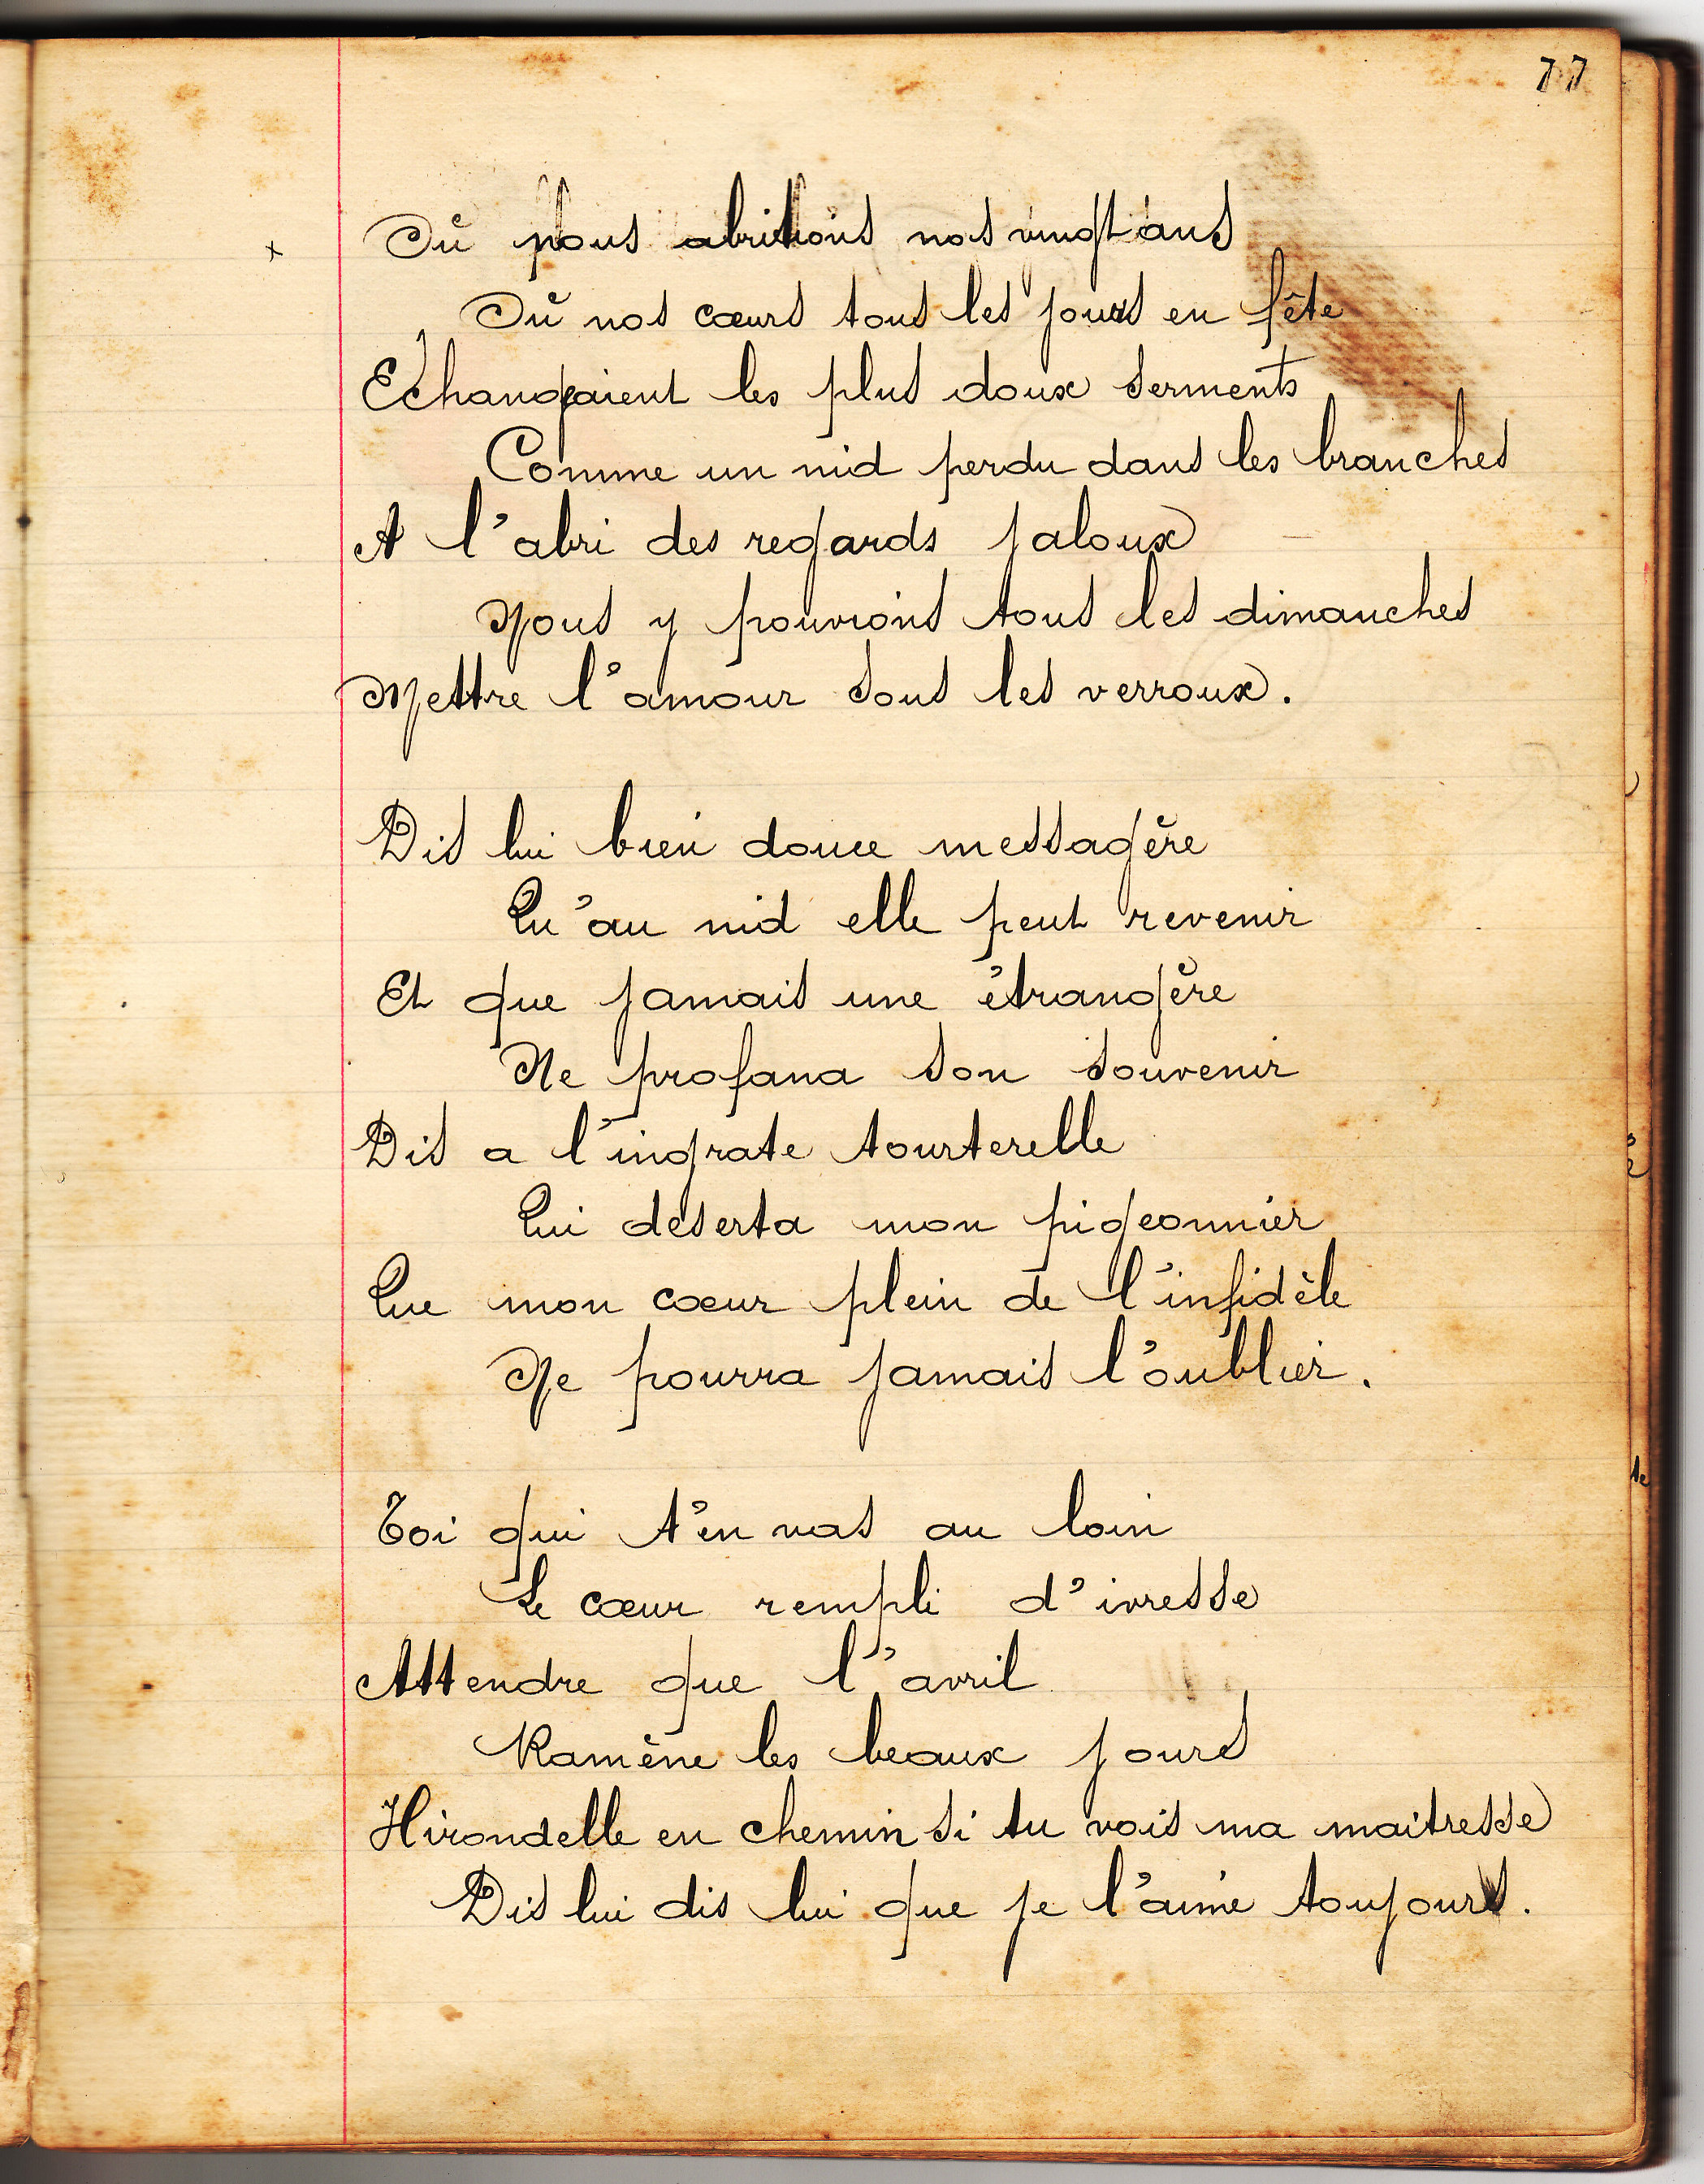 77
x
Où nous abritions nos vingt ans
Où nos cœurs tous les jours en fête
Echangeaient les plus doux serments
Comme un nid perdu dans les branches
A l'abri des regards jaloux
Nous y pouvions tous les dimanches
Mettre l'amour sous les verroux.
Dis lui bien douce messagère
Qu'au nid elle peut revenir
Et que jamais une étrangère
Ne profana son souvenir
Dis a l'ingrate tourterelle
Qui déserta mon pigeonnier
Que mon cœur plein de l'infidèle
Ne pourra jamais l'oublier.
Toi qui t'en vas au loin
Le cœur rempli d'ivresse
Attendre que l'avril
Ramène les beaux jours
Hirondelle en chemin si tu vois ma maitresse
Dis lui dis lui que je l'aime toujours.